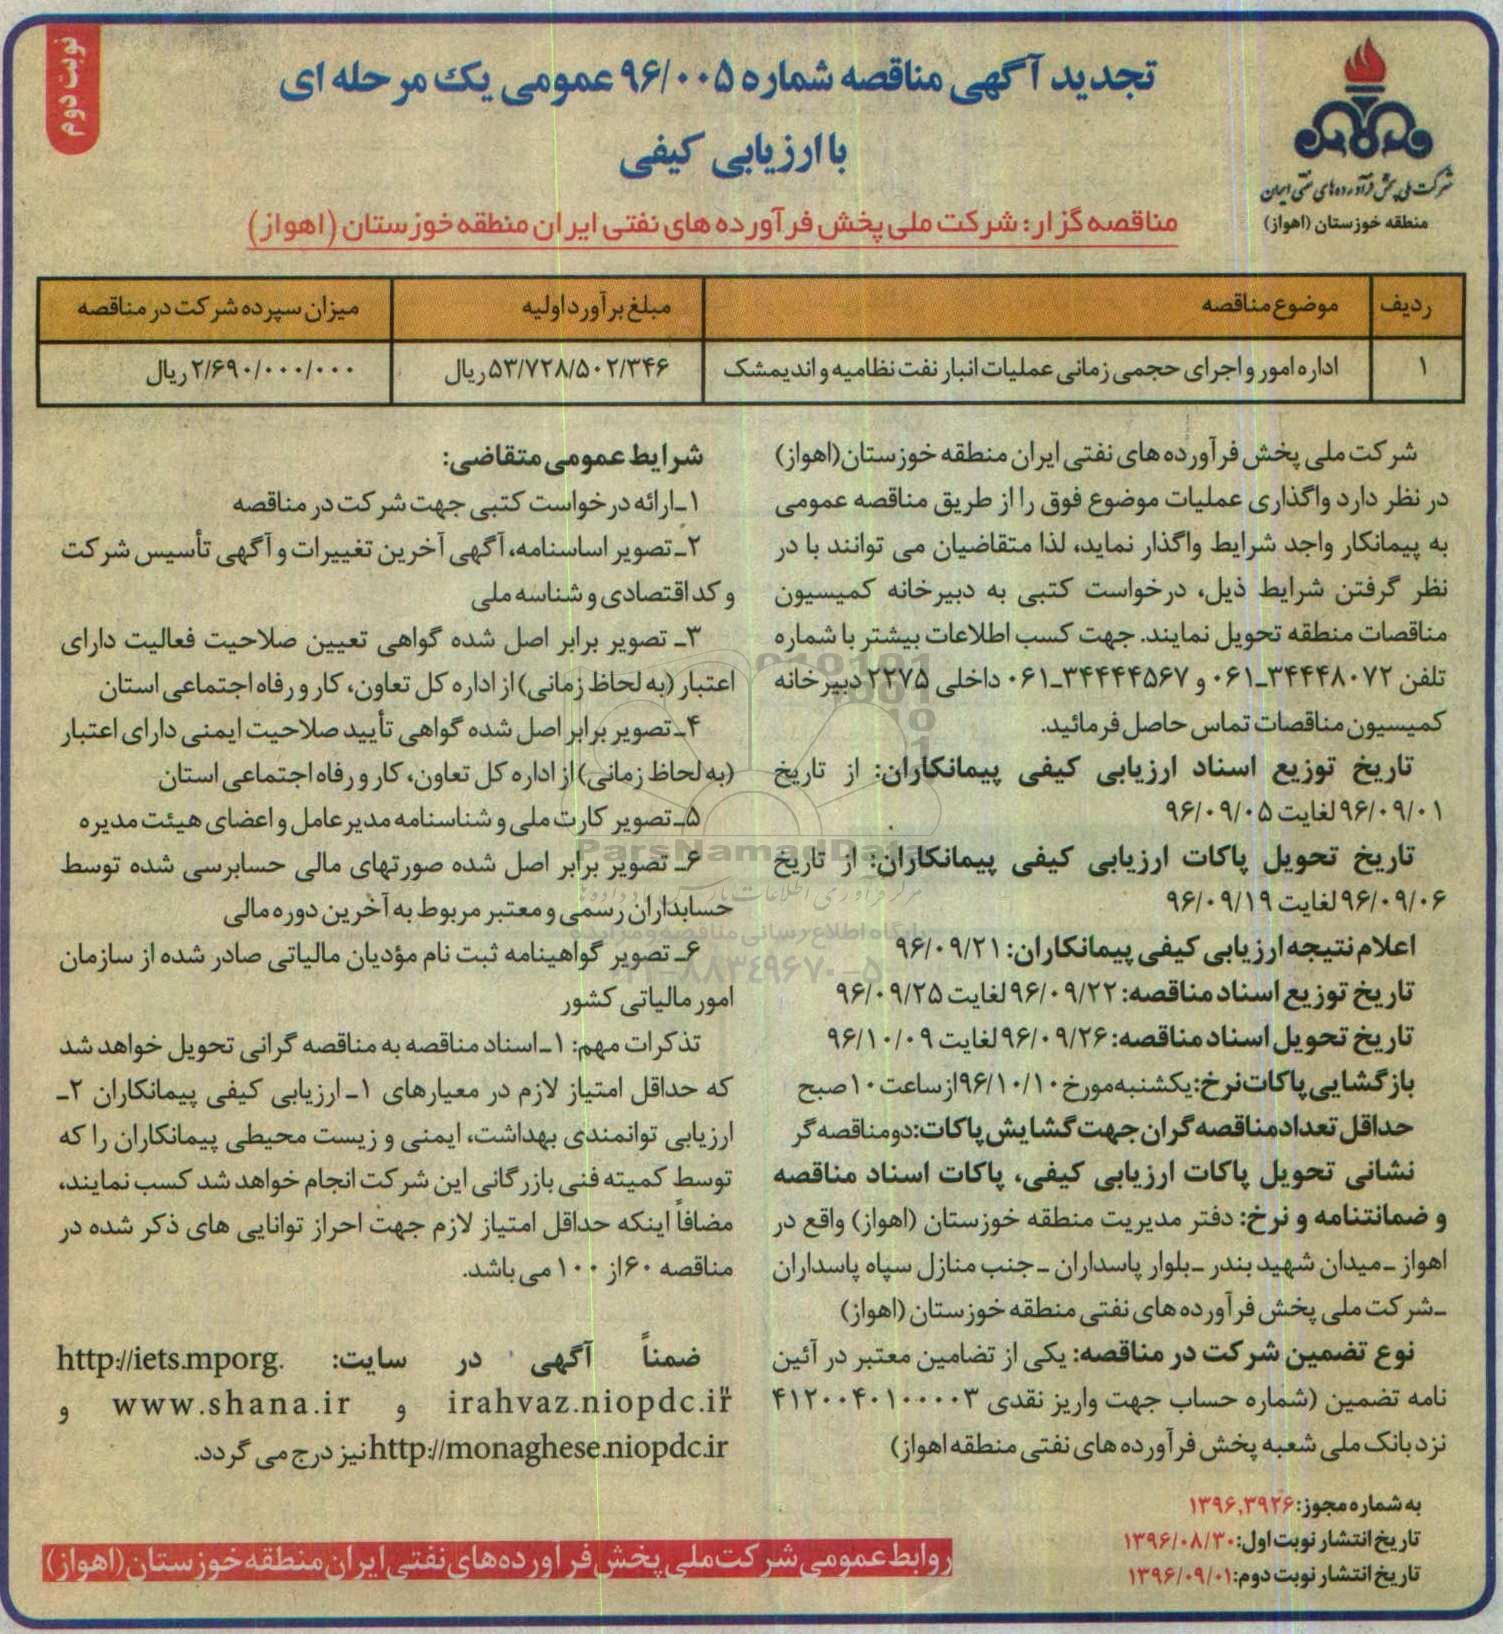 نوبت دوم
تجدید آگهی مناقصه شماره ۹۶/۰۰۵ عمومی یک مرحله ای
با ارزیابی کیفی
شرکت ملی پخش فرآورده‌های نفتی ایران
منطقه خوزستان (اهواز)
مناقصه گزار: شرکت ملی پخش فرآورده های نفتی ایران منطقه خوزستان (اهواز)
ردیف موضوع مناقصه مبلغ برآورد اولیه میزان سپرده شرکت در مناقصه
۱ اداره امور و اجرای حجمی زمانی عملیات انبار نفت نظامیه و اندیمشک ۵۳/۷۲۸/۵۰۲/۳۴۶ ریال ۲/۶۹۰/۰۰۰/۰۰۰ ریال
شرکت ملی پخش فرآورده های نفتی ایران منطقه خوزستان(اهواز)
در نظر دارد واگذاری عملیات موضوع فوق را از طریق مناقصه عمومی
به پیمانکار واجد شرایط واگذار نماید، لذا متقاضیان می توانند با در
نظر گرفتن شرایط ذیل، درخواست کتبی به دبیرخانه کمیسیون
مناقصات منطقه تحویل نمایند. جهت کسب اطلاعات بیشتر با شماره
تلفن ۳۴۴۴۸۰۷۲ـ۰۶۱ و ۳۴۴۴۴۵۶۷ـ۰۶۱ داخلی ۲۲۷۵ دبیرخانه
کمیسیون مناقصات تماس حاصل فرمائید.
تاریخ توزیع اسناد ارزیابی کیفی پیمانکاران: از تاریخ
۹۶/۰۹/۰۱ لغایت ۹۶/۰۹/۰۵
تاریخ تحویل پاکات ارزیابی کیفی پیمانکاران: از تاریخ
۹۶/۰۹/۰۶ لغایت ۹۶/۰۹/۱۹
اعلام نتیجه ارزیابی کیفی پیمانکاران: ۹۶/۰۹/۲۱
تاریخ توزیع اسناد مناقصه: ۹۶/۰۹/۲۲ لغایت ۹۶/۰۹/۲۵
تاریخ تحویل اسناد مناقصه: ۹۶/۰۹/۲۶ لغایت ۹۶/۱۰/۰۹
بازگشایی پاکات نرخ: یکشنبه مورخ ۹۶/۱۰/۱۰ از ساعت ۱۰ صبح
حداقل تعداد مناقصه گران جهت گشایش پاکات: دو مناقصه گر
نشانی تحویل پاکات ارزیابی کیفی، پاکات اسناد مناقصه
و ضمانتنامه و نرخ: دفتر مدیریت منطقه خوزستان (اهواز) واقع در
اهواز ـ میدان شهید بندر ـ بلوار پاسداران ـ جنب منازل سپاه پاسداران
ـ شرکت ملی پخش فرآورده های نفتی منطقه خوزستان (اهواز)
نوع تضمین شرکت در مناقصه: یکی از تضامین معتبر در آئین
نامه تضمین (شماره حساب جهت واریز نقدی ۴۱۲۰۰۴۰۱۰۰۰۰۳
نزد بانک ملی شعبه پخش فرآورده های نفتی منطقه اهواز)
به شماره مجوز: ۱۳۹۶.۳۹۲۶
تاریخ انتشار نوبت اول: ۱۳۹۶/۰۸/۳۰
تاریخ انتشار نوبت دوم: ۱۳۹۶/۰۹/۰۱
شرایط عمومی متقاضی:
۱ـ ارائه درخواست کتبی جهت شرکت در مناقصه
۲ـ تصویر اساسنامه، آگهی آخرین تغییرات و آگهی تأسیس شرکت
و کد اقتصادی و شناسه ملی
۳ـ تصویر برابر اصل شده گواهی تعیین صلاحیت فعالیت دارای
اعتبار (به لحاظ زمانی) از اداره کل تعاون، کار و رفاه اجتماعی استان
۴ـ تصویر برابر اصل شده گواهی تأیید صلاحیت ایمنی دارای اعتبار
(به لحاظ زمانی) از اداره کل تعاون، کار و رفاه اجتماعی استان
۵ـ تصویر کارت ملی و شناسنامه مدیرعامل و اعضای هیئت مدیره
۶ـ تصویر برابر اصل شده صورتهای مالی حسابرسی شده توسط
حسابداران رسمی و معتبر مربوط به آخرین دوره مالی
۶ـ تصویر گواهینامه ثبت نام مؤدیان مالیاتی صادر شده از سازمان
امور مالیاتی کشور
تذکرات مهم: ۱ـ اسناد مناقصه به مناقصه گرانی تحویل خواهد شد
که حداقل امتیاز لازم در معیارهای ۱ـ ارزیابی کیفی پیمانکاران ۲ـ
ارزیابی توانمندی بهداشت، ایمنی و زیست محیطی پیمانکاران را که
توسط کمیته فنی بازرگانی این شرکت انجام خواهد شد کسب نمایند،
مضافاً اینکه حداقل امتیاز لازم جهت احراز توانایی های ذکر شده در
مناقصه ۶۰ از ۱۰۰ می باشد.
ضمناً آگهی در سایت: http://iets.mporg.
irahvaz.niopdc.ir و www.shana.ir و
http://monaghese.niopdc.ir نیز درج می گردد.
روابط عمومی شرکت ملی پخش فرآورده‌های نفتی ایران منطقه خوزستان (اهواز)
ParsNamadData
پایگاه اطلاع رسانی مناقصه و مزایده
۸۸۳۴۹۶۷۰-۵